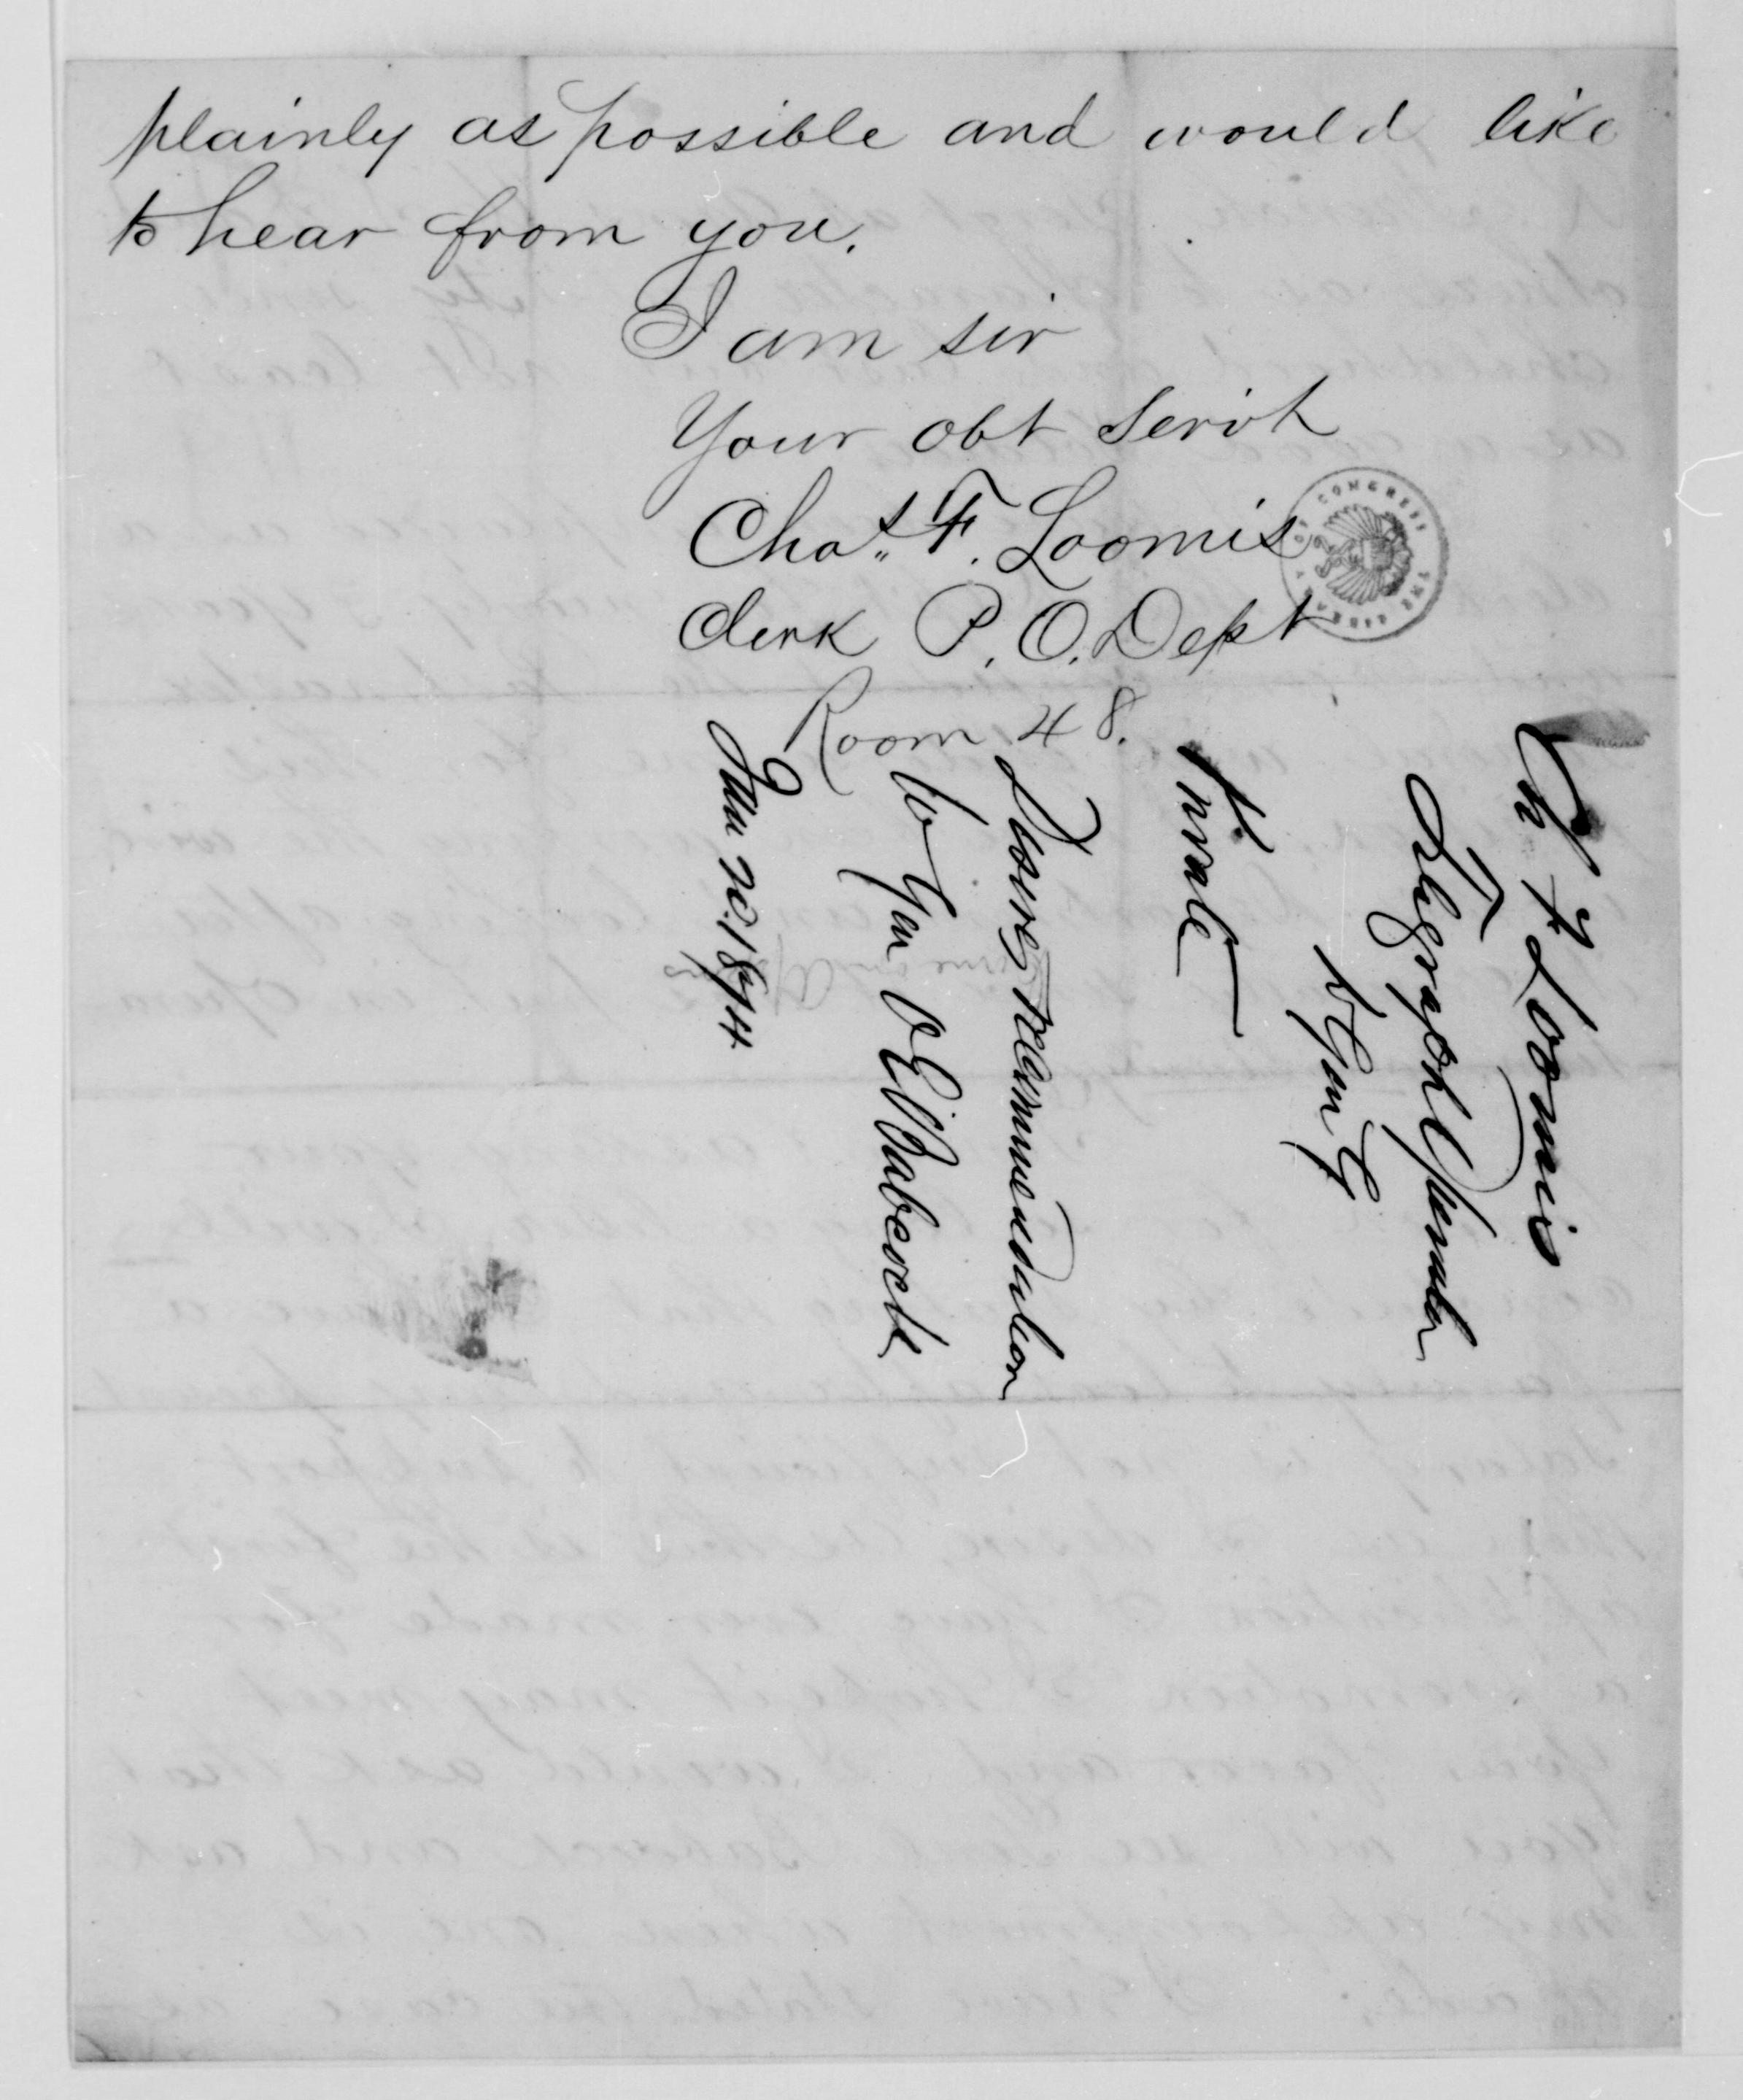 plainly as possible and would like
to hear from you.
I am sir
Your obt Servt
Chas. F. Loomis
Clerk P. O. Dept
Room 48.
Ch F Loomis
Telegraph Operator
to Gen G
Private
Desires recommendation
to Gen O E Babcock
1874
THE LIBRARY OF CONGRESS